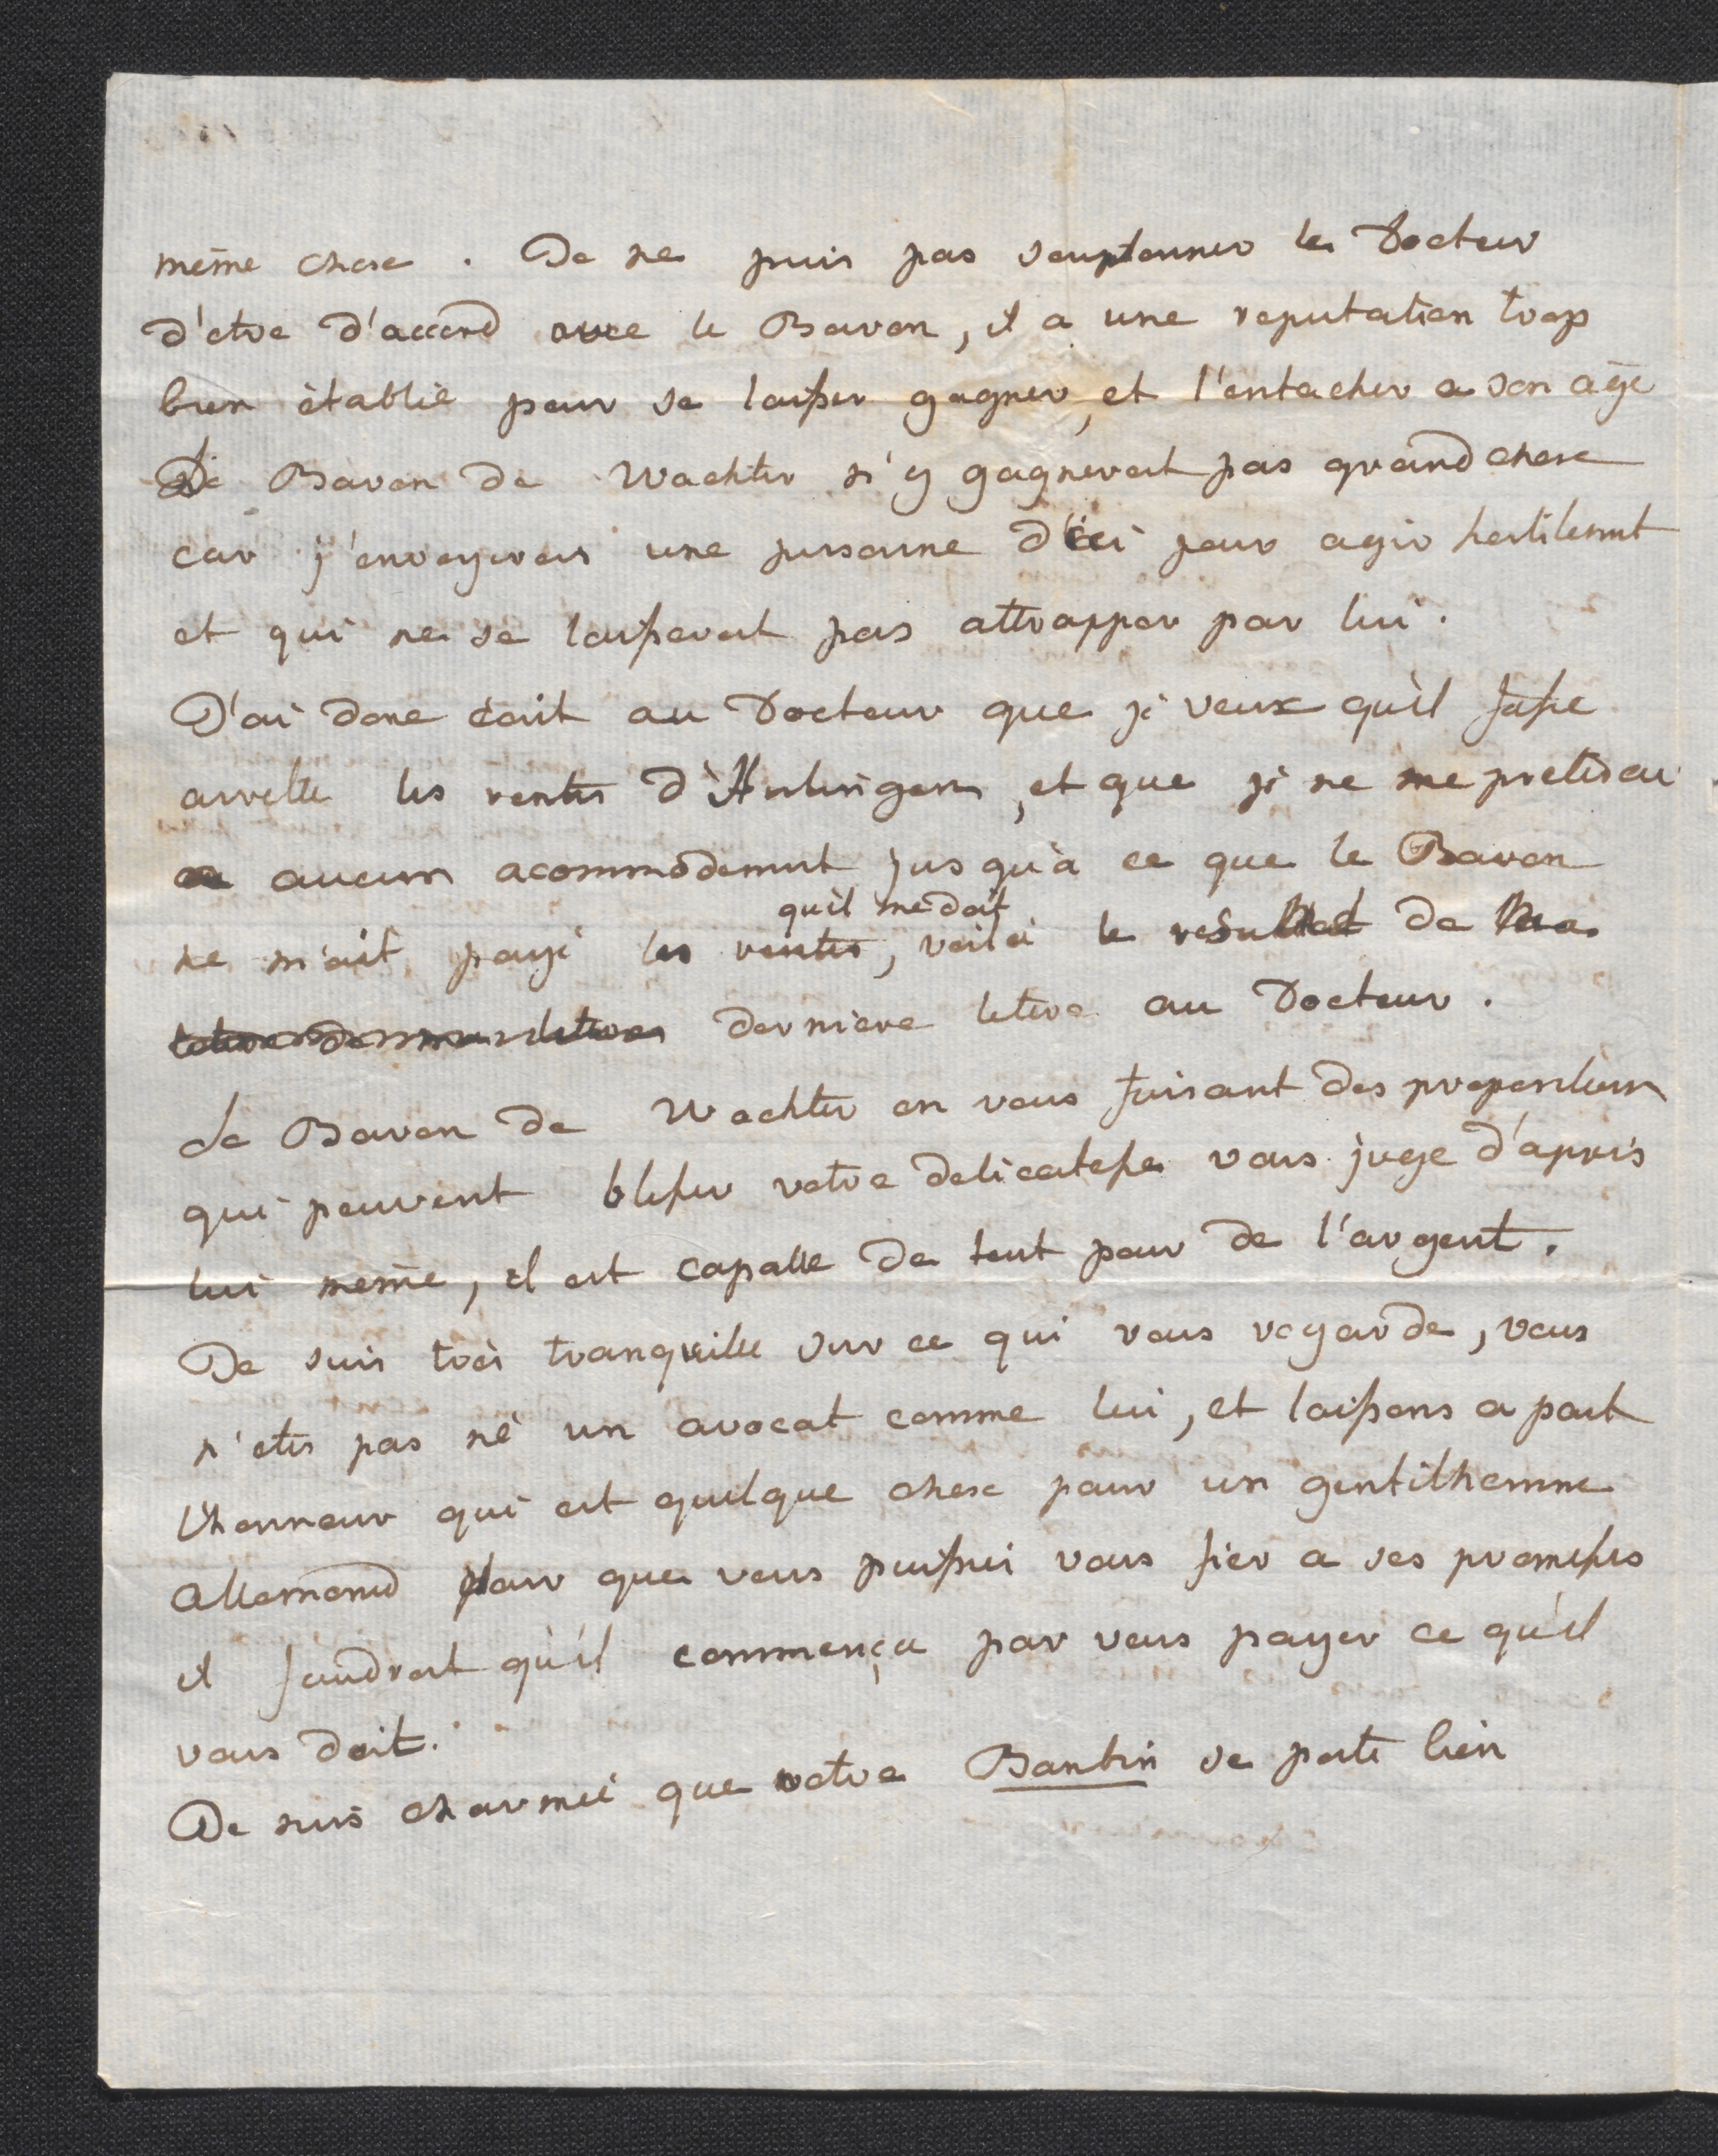 même chose. Je ne puis pas soupçonner le Docteur
d'etre d'accord avec le Baron, il a une reputation trop
bien établie pour se laisser gagner, et l'entacher a son age
Le Baron de Wachter n'y gagnerait pas grand chose
car j'envoyerois une personne d'ici pour agir hostilement
et qui ne se laisserait pas attrapper par lui.
J'ai donc écrit au Docteur que je veux qu'il fasse
arretter les rentes d' et que je ne me preterai
a aucun acommodement jusqu'à ce que le Baron
qu'il me doit
ne m'ait payé les rentes, voila le resultat de ma
derniere lettre au Docteur.
Le Baron de Wachter en vous faisant des proposition
qui peuvent blesser votre delicatesse vous juge d'après
lui même, il est capable de tout pour de l'argent.
Je suis très tranquille sur ce qui vous regarde, vous
n'etes pas né un avocat comme lui, et laissons a part
l'honneur qui est quelque chose pour un gentilhomme
Allemand pour que vous puissiez vous fier a ses promesses
il faudrait qu'il commença par vous payer ce qu'il
vous doit.
Je suis charmée que votre Bambin se porte bien